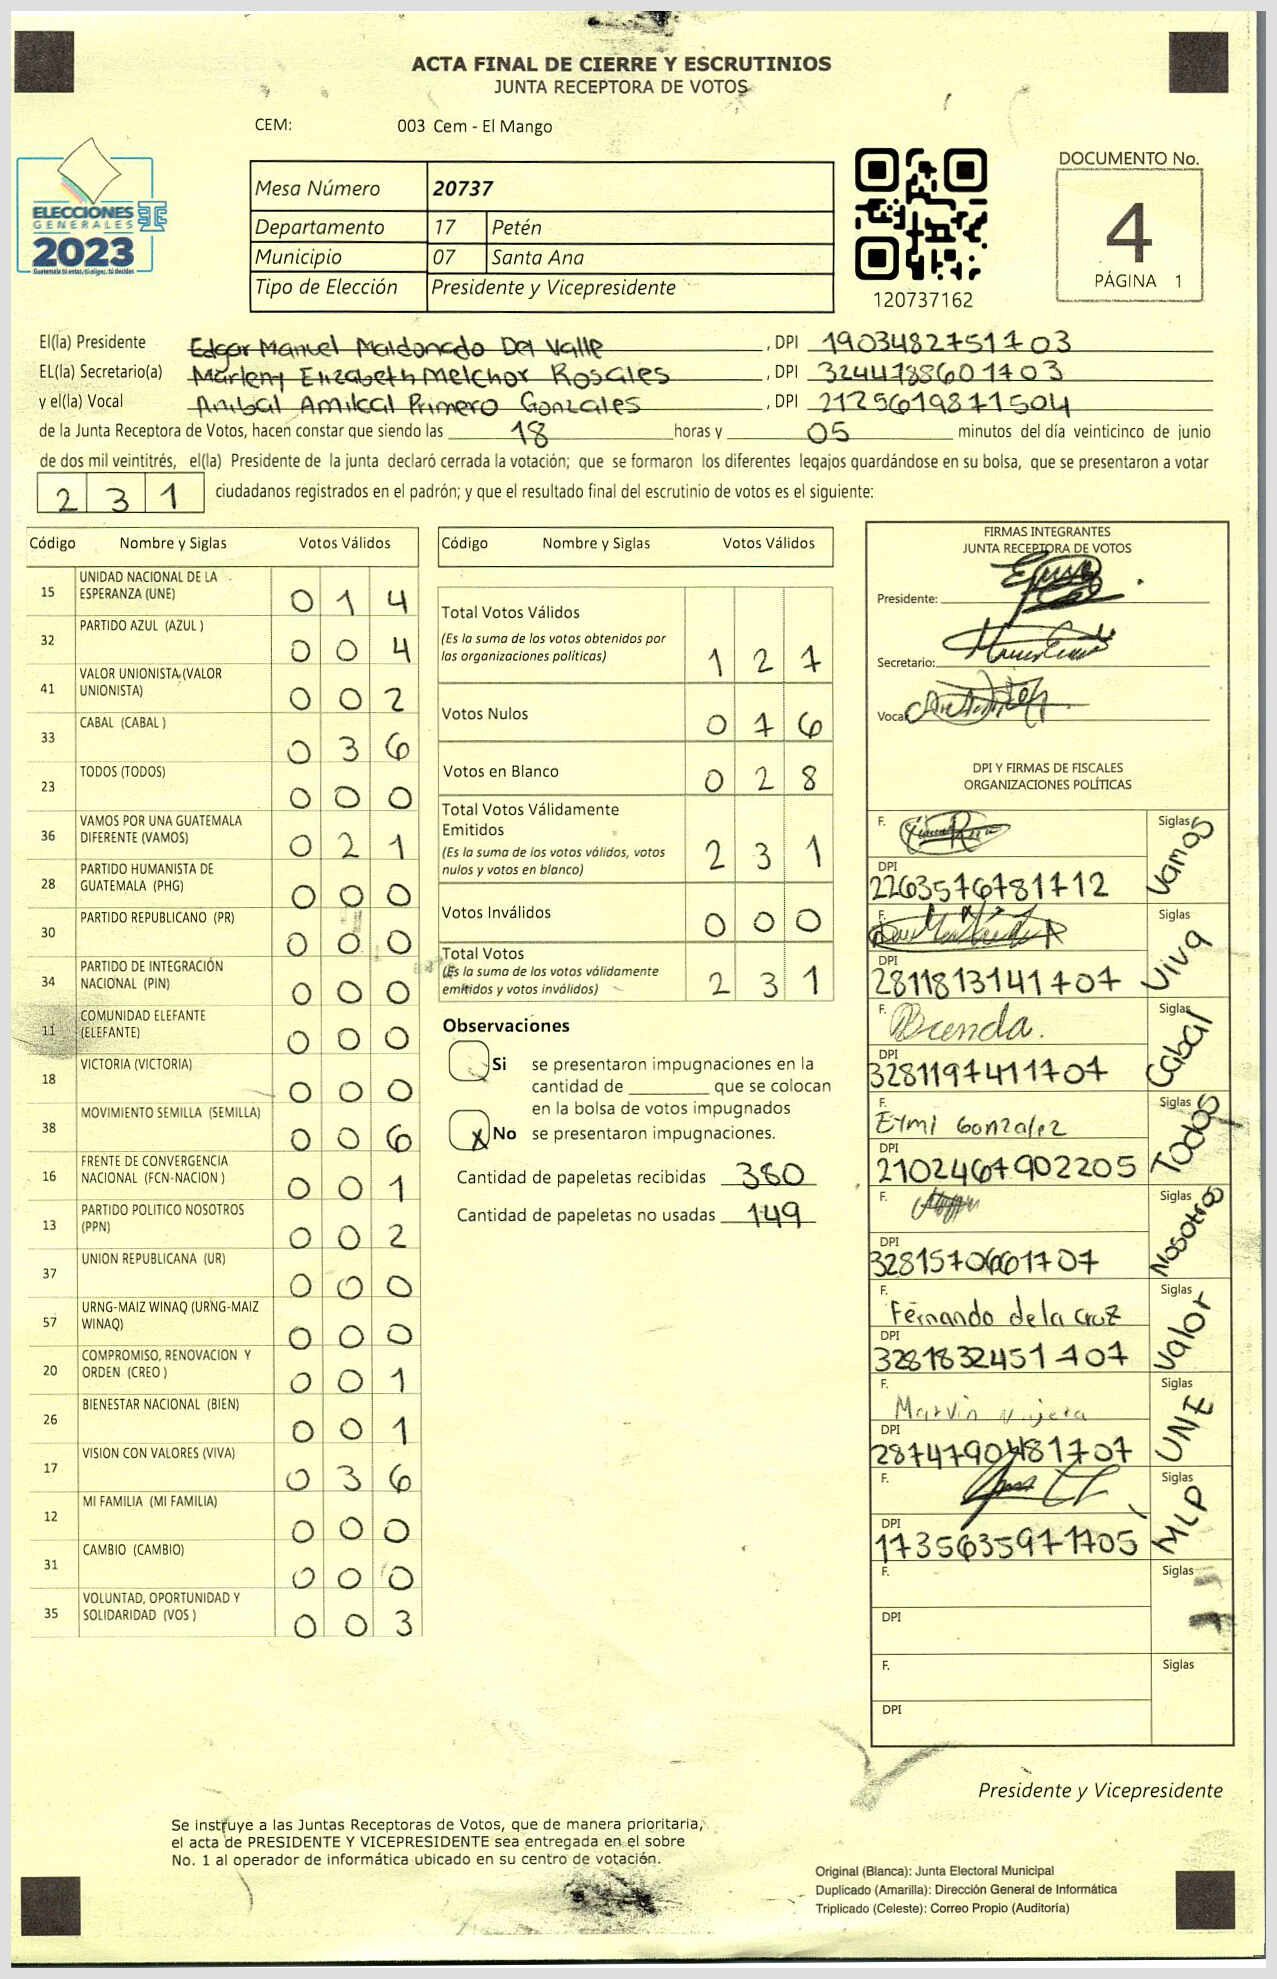 ACTA FINAL DE CIERRE Y ESCRUTINIOS
JUNTA RECEPTORA DE VOTOS
CEM: 003 Cem - El Mango
ELECCIONES
GENERALES
2023
Guatemala tú estas, tú eliges, tú decides
Mesa Número 20737
Departamento 17 Petén
Municipio 07 Santa Ana
Tipo de Elección Presidente y Vicepresidente
120737162
DOCUMENTO No.
4
PÁGINA 1
El(la) Presidente Edgar Manuel Maldonado Del Valle, DPI 1903482751703
EL(la) Secretario(a) Marleny Elizabeth Melchor Rosales, DPI 3244788601703
y el(la) Vocal Anibal Amilcal Primero Gonzales, DPI 2125619871504
de la Junta Receptora de Votos, hacen constar que siendo las 18 horas y 05 minutos del día veinticinco de junio
de dos mil veintitrés, el(la) Presidente de la junta declaró cerrada la votación; que se formaron los diferentes legajos guardándose en su bolsa, que se presentaron a votar
231 ciudadanos registrados en el padrón; y que el resultado final del escrutinio de votos es el siguiente:
Código Nombre y Siglas Votos Válidos
15 UNIDAD NACIONAL DE LA ESPERANZA (UNE) 0 1 4
32 PARTIDO AZUL (AZUL ) 0 0 4
41 VALOR UNIONISTA (VALOR UNIONISTA) 0 0 2
33 CABAL (CABAL ) 0 3 6
23 TODOS (TODOS) 0 0 0
36 VAMOS POR UNA GUATEMALA DIFERENTE (VAMOS) 0 2 1
28 PARTIDO HUMANISTA DE GUATEMALA (PHG) 0 0 0
30 PARTIDO REPUBLICANO (PR) 0 0 0
34 PARTIDO DE INTEGRACIÓN NACIONAL (PIN) 0 0 0
11 COMUNIDAD ELEFANTE (ELEFANTE) 0 0 0
18 VICTORIA (VICTORIA) 0 0 0
38 MOVIMIENTO SEMILLA (SEMILLA) 0 0 6
16 FRENTE DE CONVERGENCIA NACIONAL (FCN-NACION ) 0 0 1
13 PARTIDO POLITICO NOSOTROS (PPN) 0 0 2
37 UNION REPUBLICANA (UR) 0 0 0
57 URNG-MAIZ WINAQ (URNG-MAIZ WINAQ) 0 0 0
20 COMPROMISO, RENOVACION Y ORDEN (CREO ) 0 0 1
26 BIENESTAR NACIONAL (BIEN) 0 0 1
17 VISION CON VALORES (VIVA) 0 3 6
12 MI FAMILIA (MI FAMILIA) 0 0 0
31 CAMBIO (CAMBIO) 0 0 0
35 VOLUNTAD, OPORTUNIDAD Y SOLIDARIDAD (VOS ) 0 0 3
Código Nombre y Siglas Votos Válidos
Total Votos Válidos 1 2 7
(Es la suma de los votos obtenidos por
las organizaciones políticas)
Votos Nulos 0 7 6
Votos en Blanco 0 2 8
Total Votos Válidamente
Emitidos 2 3 1
(Es la suma de los votos válidos, votos
nulos y votos en blanco)
Votos Inválidos 0 0 0
Total Votos 2 3 1
(Es la suma de los votos válidamente
emitidos y votos inválidos)
Observaciones
Si se presentaron impugnaciones en la
cantidad de ________ que se colocan
en la bolsa de votos impugnados
X No se presentaron impugnaciones.
Cantidad de papeletas recibidas 380
Cantidad de papeletas no usadas 149
FIRMAS INTEGRANTES
JUNTA RECEPTORA DE VOTOS
Presidente:
Secretario:
Vocal
DPI Y FIRMAS DE FISCALES
ORGANIZACIONES POLÍTICAS
F. Siglas Vamos
DPI 2263576781712
F. Siglas Viva
DPI 2811813141707
F. Brenda. Siglas Cabal
DPI 3281197411707
F. Eymi Gonzalez Siglas Todos
DPI 2102467902205
F. Siglas Nosotros
DPI 3281570661707
F. Fernando de la cruz Siglas Valor
DPI 3281832451707
F. Marvin Najera Siglas UNE
DPI 2874790481707
F. Siglas MLP
DPI 1735635971705
F. Siglas
DPI
F. Siglas
DPI
Presidente y Vicepresidente
Se instruye a las Juntas Receptoras de Votos, que de manera prioritaria,
el acta de PRESIDENTE Y VICEPRESIDENTE sea entregada en el sobre
No. 1 al operador de informática ubicado en su centro de votación.
Original (Blanca): Junta Electoral Municipal
Duplicado (Amarilla): Dirección General de Informática
Triplicado (Celeste): Correo Propio (Auditoría)